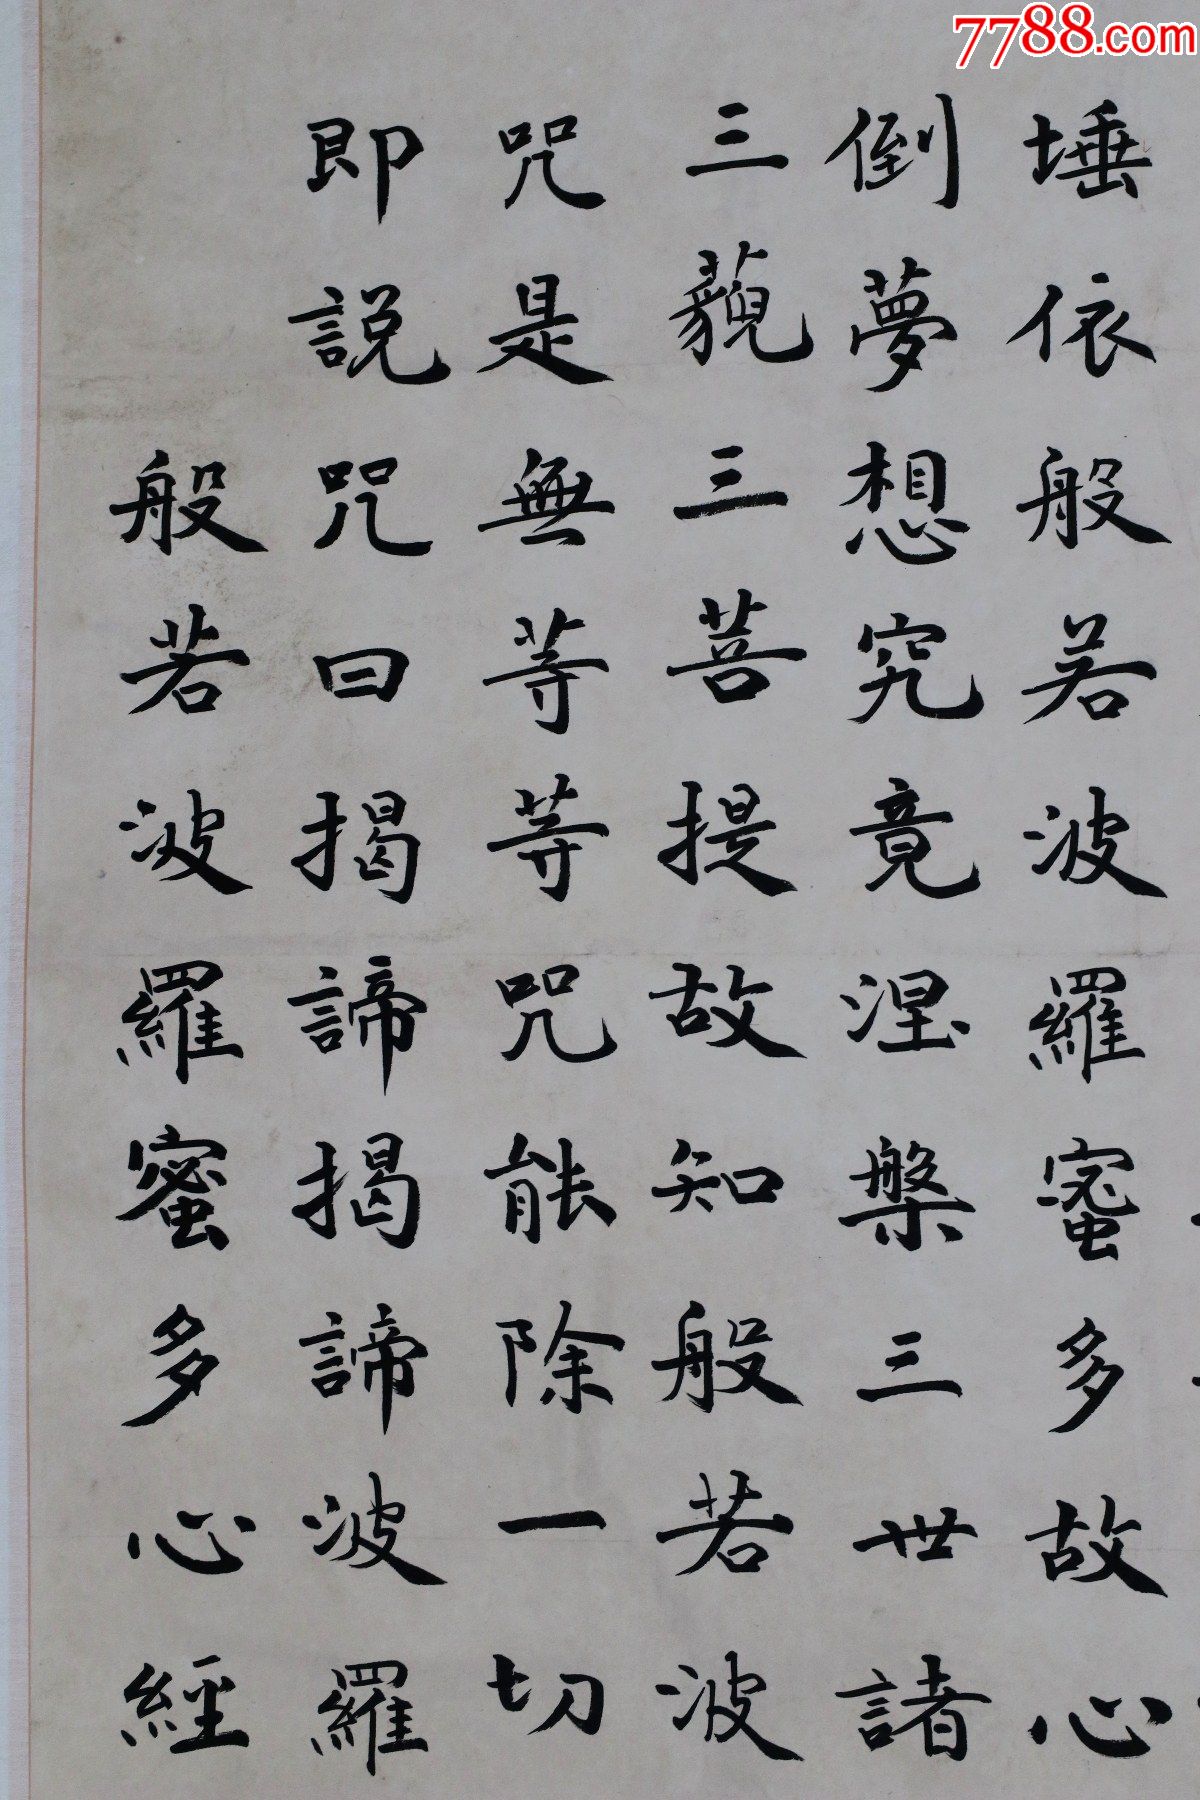 7788.com
埵依般若波羅蜜多故心
倒夢想究竟涅槃三世諸
三藐三菩提故知般若波
咒是無等等咒能除一切
即說咒曰揭諦揭諦波羅
般若波羅蜜多心經